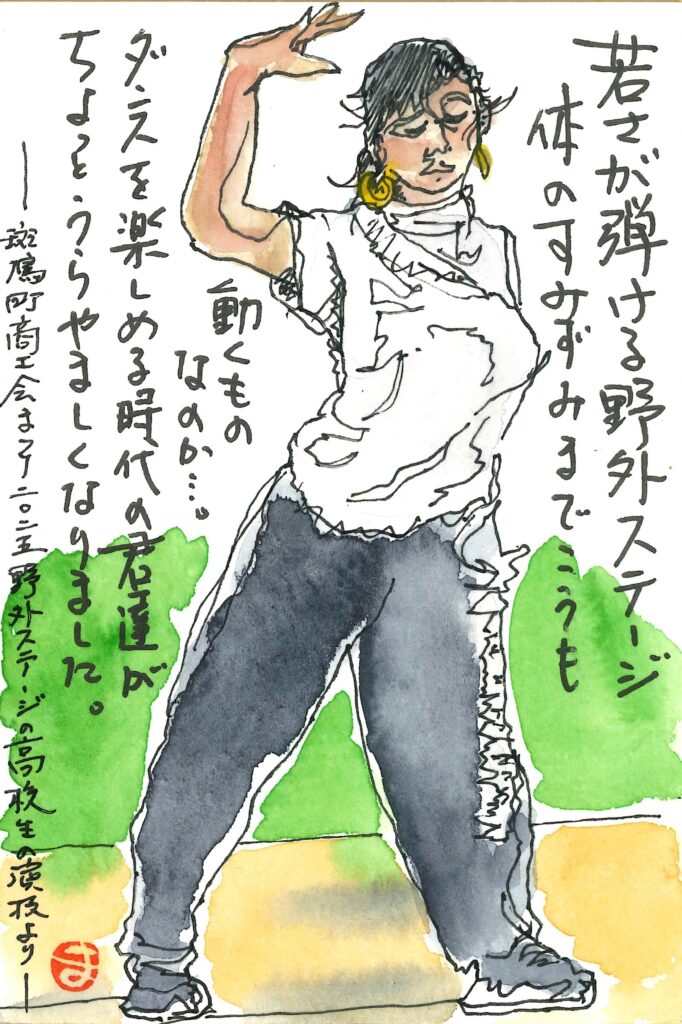 若さが弾ける野外ステージ
体のすみずみまでこうも
動くもの
なのか…。
ダンスを楽しめる時代の君達が
ちょっとうらやましくなりました。
―斑鳩町商工会まつり二〇二五野外ステージの高校生の演技より―